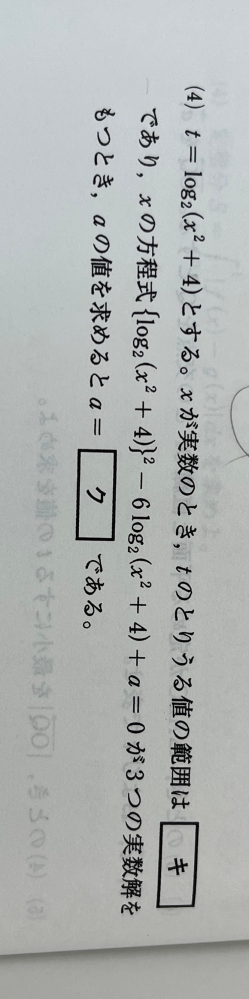 (4) t = log₂(x² + 4) とする。x が実数のとき, t のとりうる値の範囲は キ
であり, x の方程式 {log₂(x² + 4)}² − 6 log₂(x² + 4) + a = 0 が 3 つの実数解を
もつとき, a の値を求めると a = ク である。